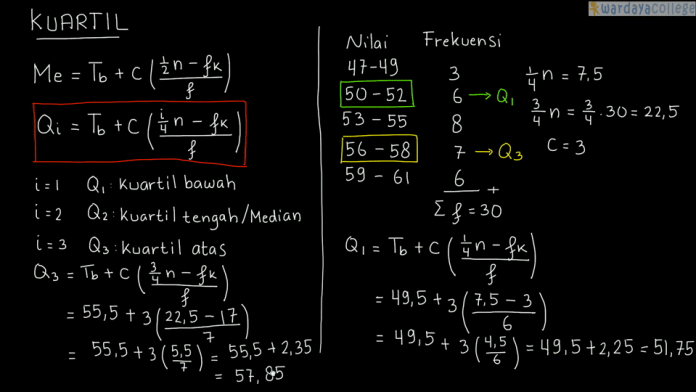 wardayacollege
KUARTIL
Me = Tb + C ( (1/2 n - fk) / f )
Qi = Tb + C ( (i/4 n - fk) / f )
i = 1 Q₁ : Kuartil bawah
i = 2 Q₂ : Kuartil tengah/Median
i = 3 Q₃ : Kuartil atas
Q₃ = Tb + C ( (3/4 n - fk) / f )
= 55,5 + 3 ( (22,5 - 17) / 7 )
= 55,5 + 3 ( 5,5 / 7 ) = 55,5 + 2,35
= 57,85
Nilai Frekuensi
47 - 49 3
50 - 52 6 → Q₁
53 - 55 8
56 - 58 7 → Q₃
59 - 61 6 +
Σ f = 30
1/4 n = 7,5
3/4 n = 3/4 . 30 = 22,5
C = 3
Q₁ = Tb + C ( (1/4 n - fk) / f )
= 49,5 + 3 ( (7,5 - 3) / 6 )
= 49,5 + 3 ( 4,5 / 6 ) = 49,5 + 2,25 = 51,75